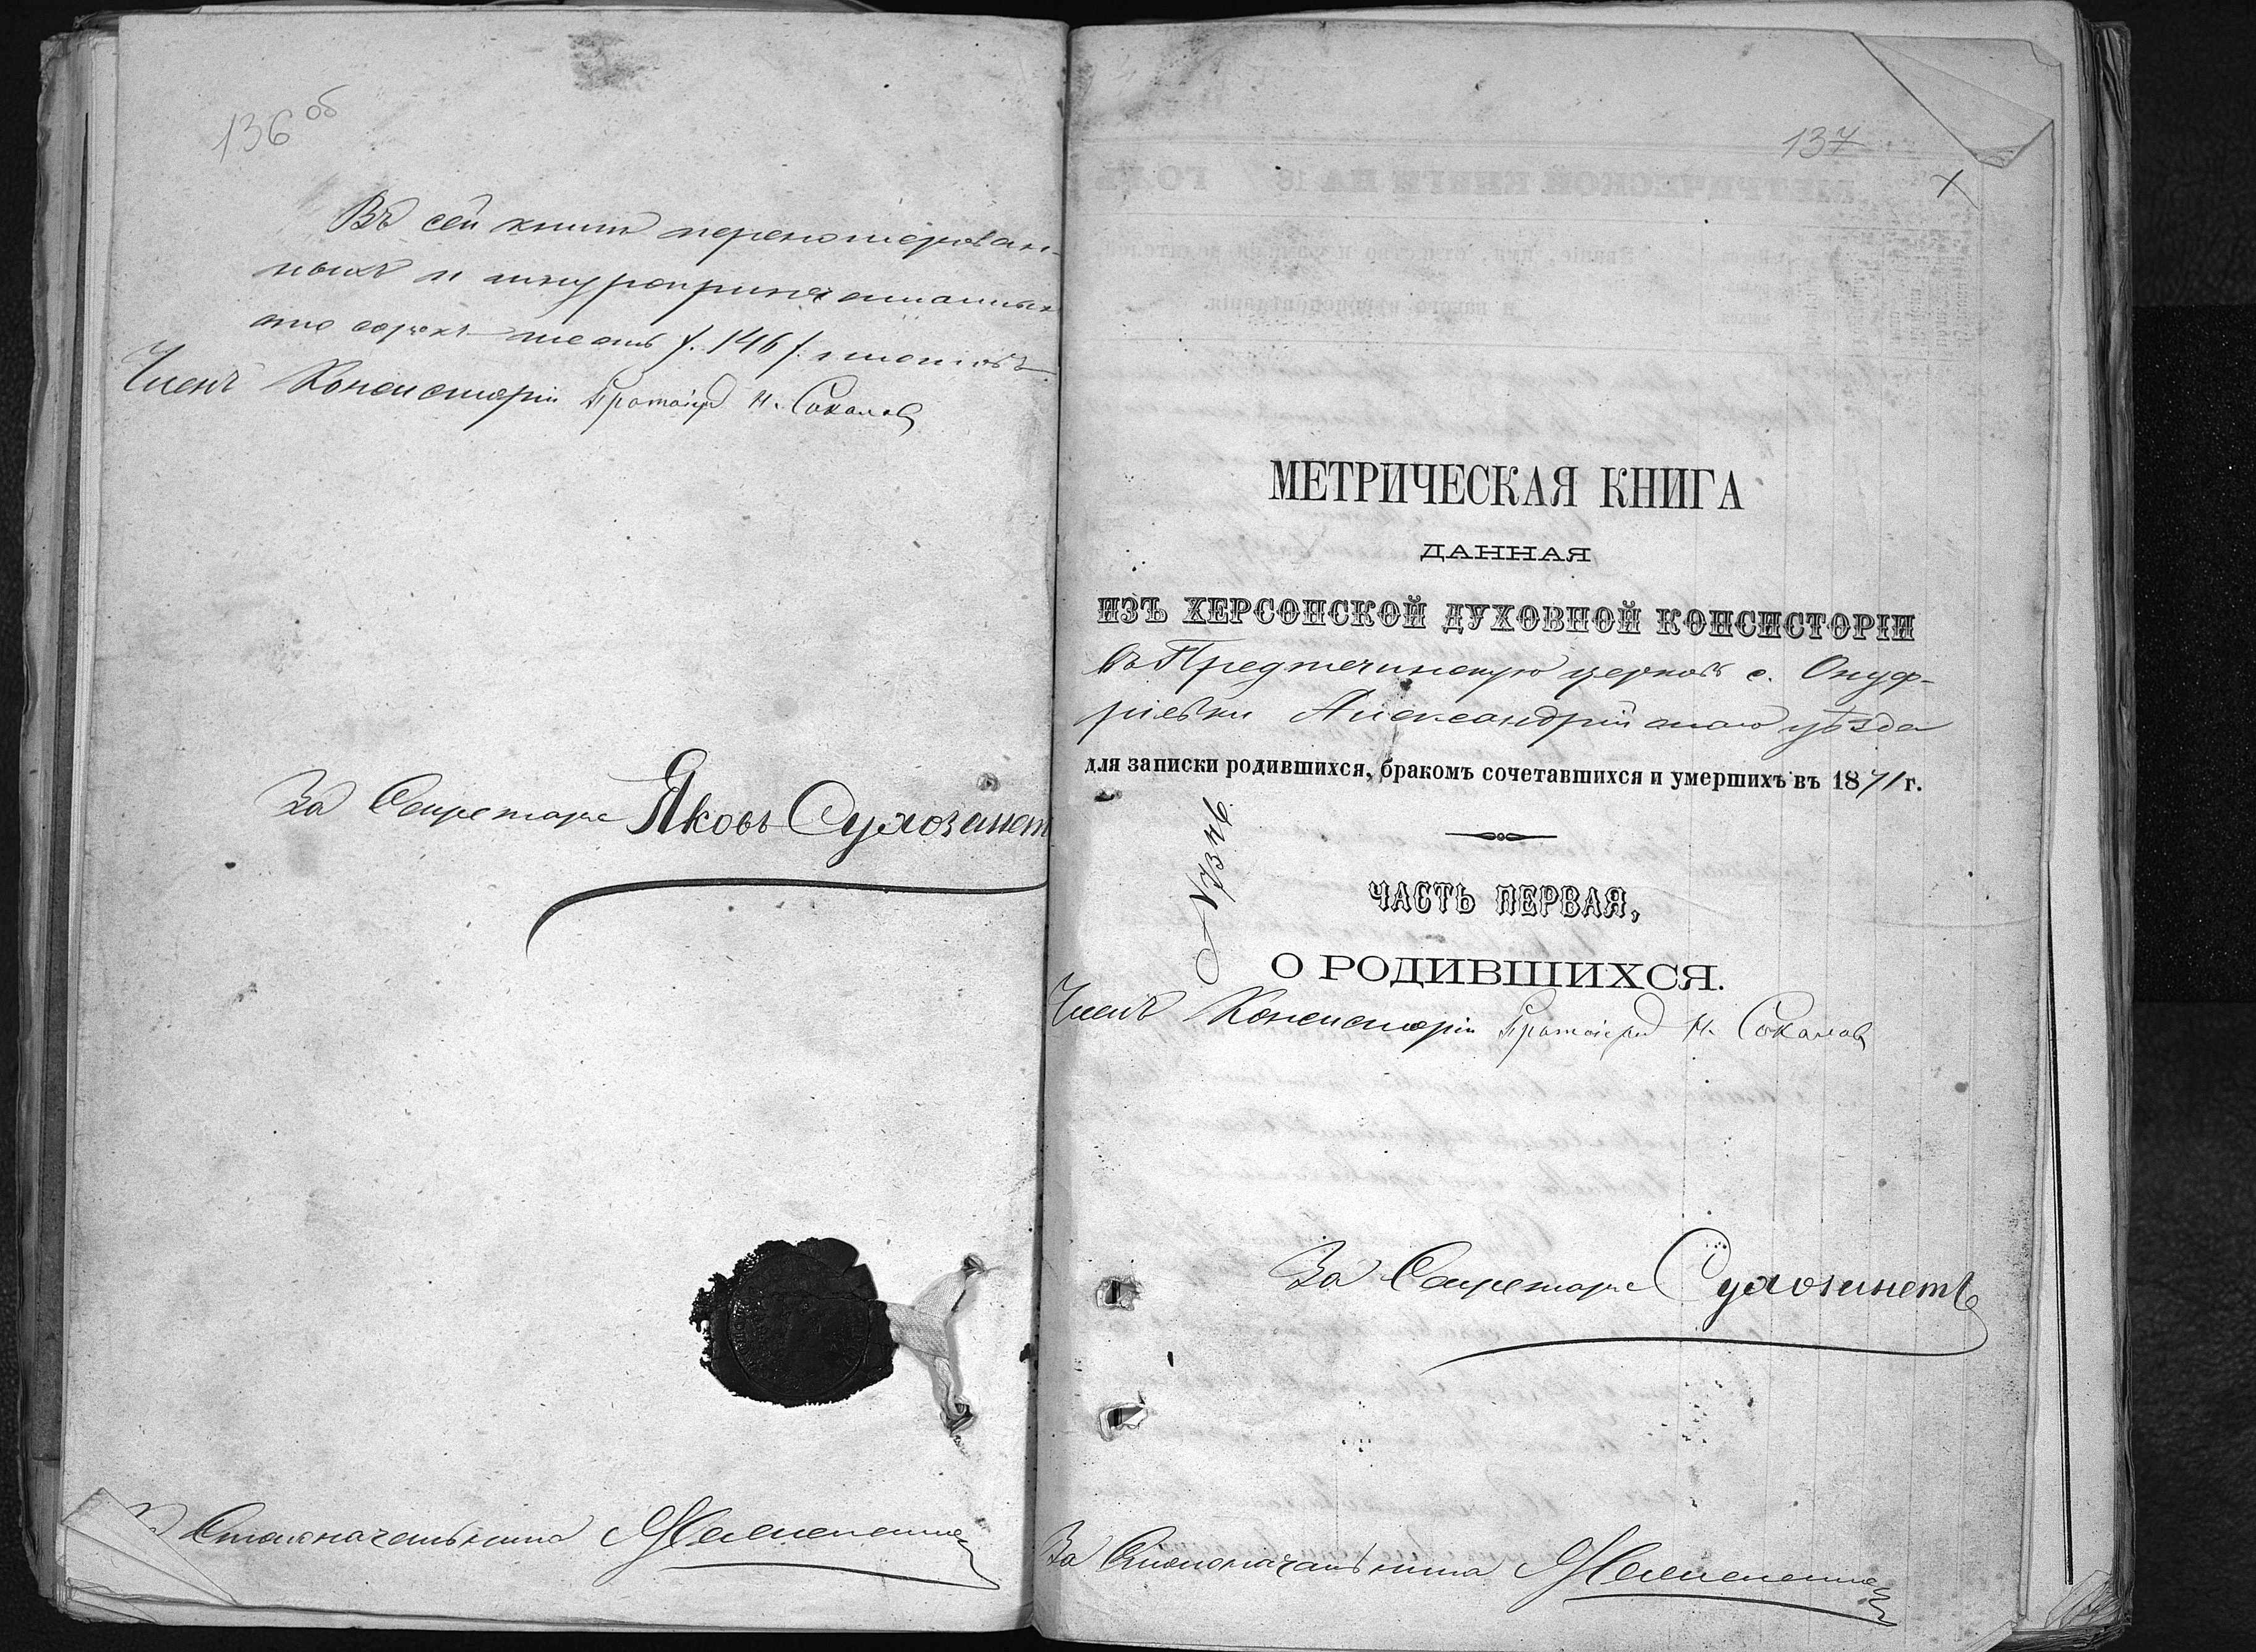 136 об
Въ сей книге перенумерован-
ныхъ и шнуроприпечатанныхъ
сто сорокъ шесть /. 146 /. листовъ.
Членъ Консисторіи Протоіерей Н. Соколов
За Секретаря Яковъ Сухозанет
За Столоначальника
137
МЕТРИЧЕСКАЯ КНИГА
ДАННАЯ
ИЗЪ ХЕРСОНСКОЙ ДУХОВНОЙ КОНСИСТОРІИ
въ Предтечинскую церковь с. Онуф-
ріевки Александрійскаго уѣзда
для записки родившихся, бракомъ сочетавшихся и умершихъ въ 1871 г.
ЧАСТЬ ПЕРВАЯ,
О РОДИВШИХСЯ.
Членъ Консисторіи Протоіерей Н. Соколов
За Секретаря Сухозанетъ
За Столоначальника